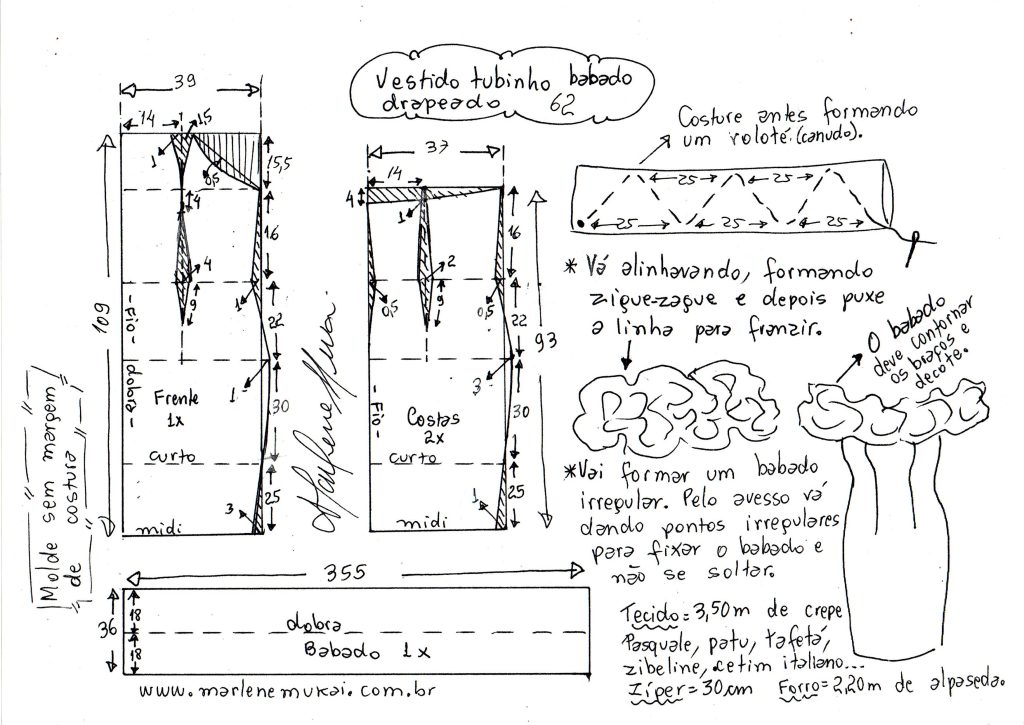 Vestido tubinho babado
drapeado 62
39
14
1,5
1
0,5
15,5
4
16
4
9
1
22
109
- Fio -
dobra -
Frente
1x
1
30
curto
25
3
midi
Molde sem margem
de costura
Marlene Mukai
37
14
4
1
16
2
0,5
9
0,5
22
93
3
- Fio -
Costas
2x
30
curto
1
25
midi
Costure antes formando
um rolotê.(canudo).
25 25
25 25 25
* Vá alinhavando, formando
zigue-zague e depois puxe
a linha para franzir.
O babado
deve contornar
os braços e
decote.
*Vai formar um babado
irregular. Pelo avesso vá
dando pontos irregulares
para fixar o babado e
não se soltar.
355
36
18
18
dobra
Babado 1x
www.marlenemukai.com.br
Tecido=3,50m de crepe
Pasquale, patu, tafetá,
zibeline, cetim italiano...
Zíper=30cm Forro=2,20m de alpaseda.